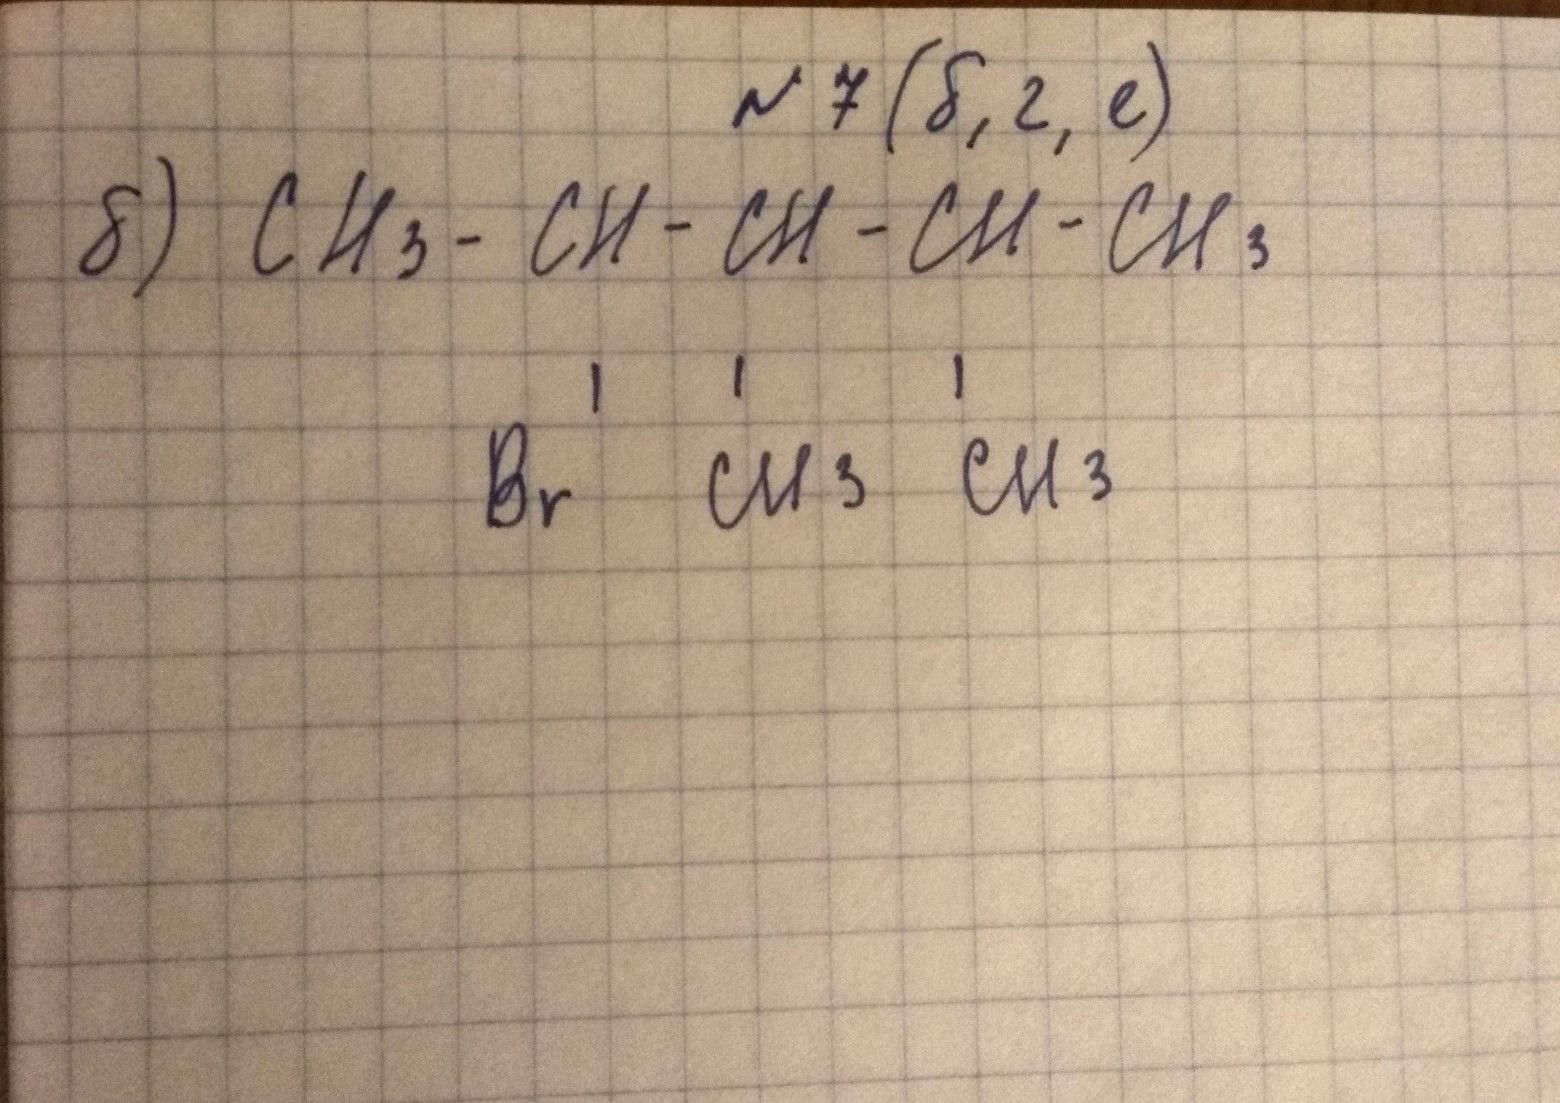 № 7 (б, г, е)
б) CH3 - CH - CH - CH - CH3
| | |
Br CH3 CH3